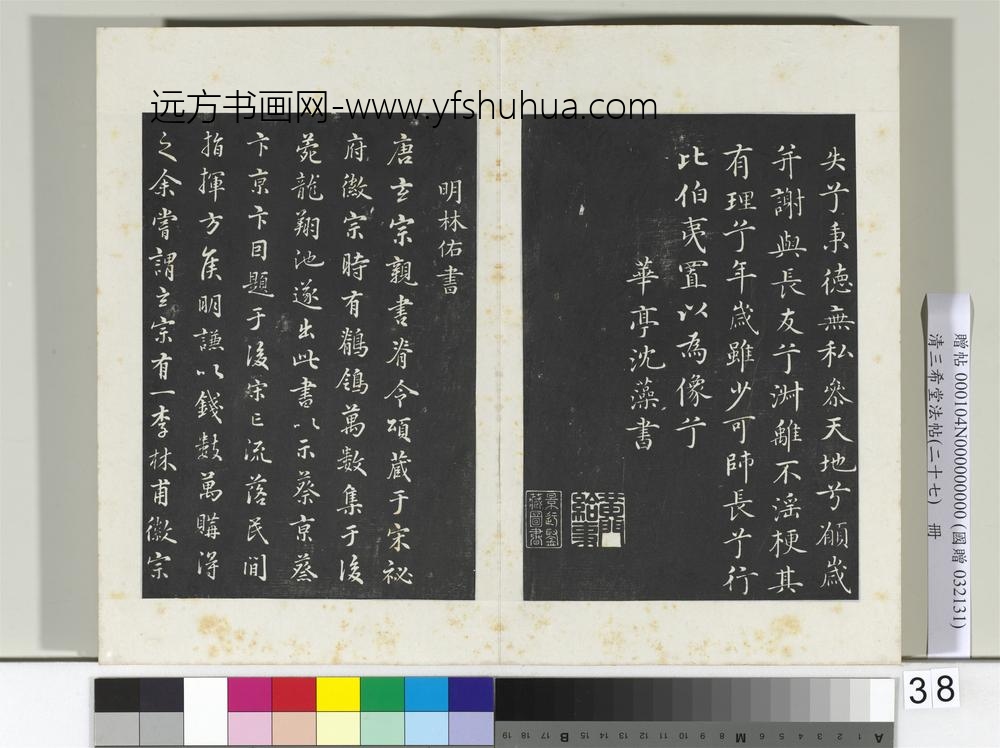 远方书画网-www.yfshuhua.com
失兮秉德無私參天地兮願歲
并謝與長友兮淑離不滛梗其
有理兮年歲雖少可師長兮行
比伯夷置以為像兮
華亭沈藻書
黄門給事
明林佑書
唐玄宗親書脊令頌蔵于宋祕
府徽宗時有鶺鴒萬數集于後
苑龍翔池遂出此書以示蔡京蔡
卞京卞同題于後宋亡流落民间
指揮方侯明謙以錢数萬購得
之余嘗謂玄宗有一李林甫徽宗
贈帖 000104N000000000 (國贈 032131)
清三希堂法帖(二十七) 冊
38
19 18 17 16 15 B 12 11 10 9 8 7 M 6 5 4 3 2 1 A